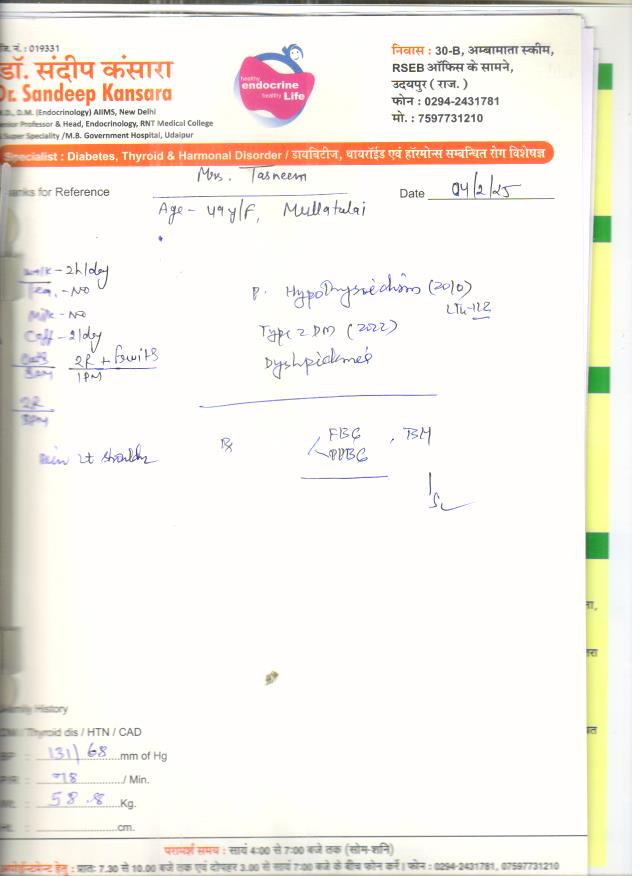 जि. नं. : 019331
डॉ. संदीप कंसारा
Dr. Sandeep Kansara
D., D.M. (Endocrinology) AIIMS, New Delhi
enior Professor & Head, Endocrinology, RNT Medical College
Super Speciality /M.B. Government Hospital, Udaipur
healthy
endocrine
healthy Life
निवास : 30-B, अम्बामाता स्कीम,
RSEB ऑफिस के सामने,
उदयपुर ( राज. )
फोन : 0294-2431781
मो. : 7597731210
Specialist : Diabetes, Thyroid & Harmonal Disorder / डायबिटीज, थायरॉईड एवं हॉरमोन्स सम्बन्धित रोग विशेषज्ञ
hanks for Reference
Mrs. Tasneem
Date 04/2/25
Age - 49y/F, Mullatalai
walk - 2h/day
Tea - No
Milk - No
Coff - 2/day
2R + fruits
1PM
2R
8PM
Pain Lt shoulder
Hypothyroidism (2010)
Type 2 DM (2022)
Rx
FBG
PPBG
, BM
amily History
DM / Thyroid dis / HTN / CAD
BP : 131/68 mm of Hg
P/R : 78 / Min.
Wt. : 58.8 Kg.
Ht. : cm.
परामर्श समय : सायं 4:00 से 7:00 बजे तक (सोम-शनि)
अपोईन्टमेन्ट हेतु : प्रातः 7.30 से 10.00 बजे तक एवं दोपहर 3.00 से सायं 7:00 बजे के बीच फोन करें। फोन : 0294-2431781, 07597731210